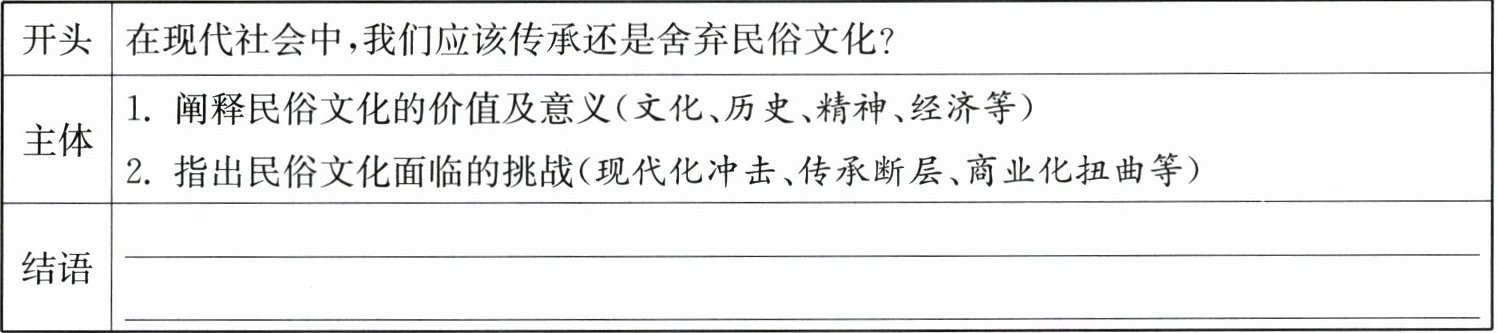 开头 在现代社会中,我们应该传承还是舍弃民俗文化?
主体
1. 阐释民俗文化的价值及意义(文化、历史、精神、经济等)
2. 指出民俗文化面临的挑战(现代化冲击、传承断层、商业化扭曲等)
结语